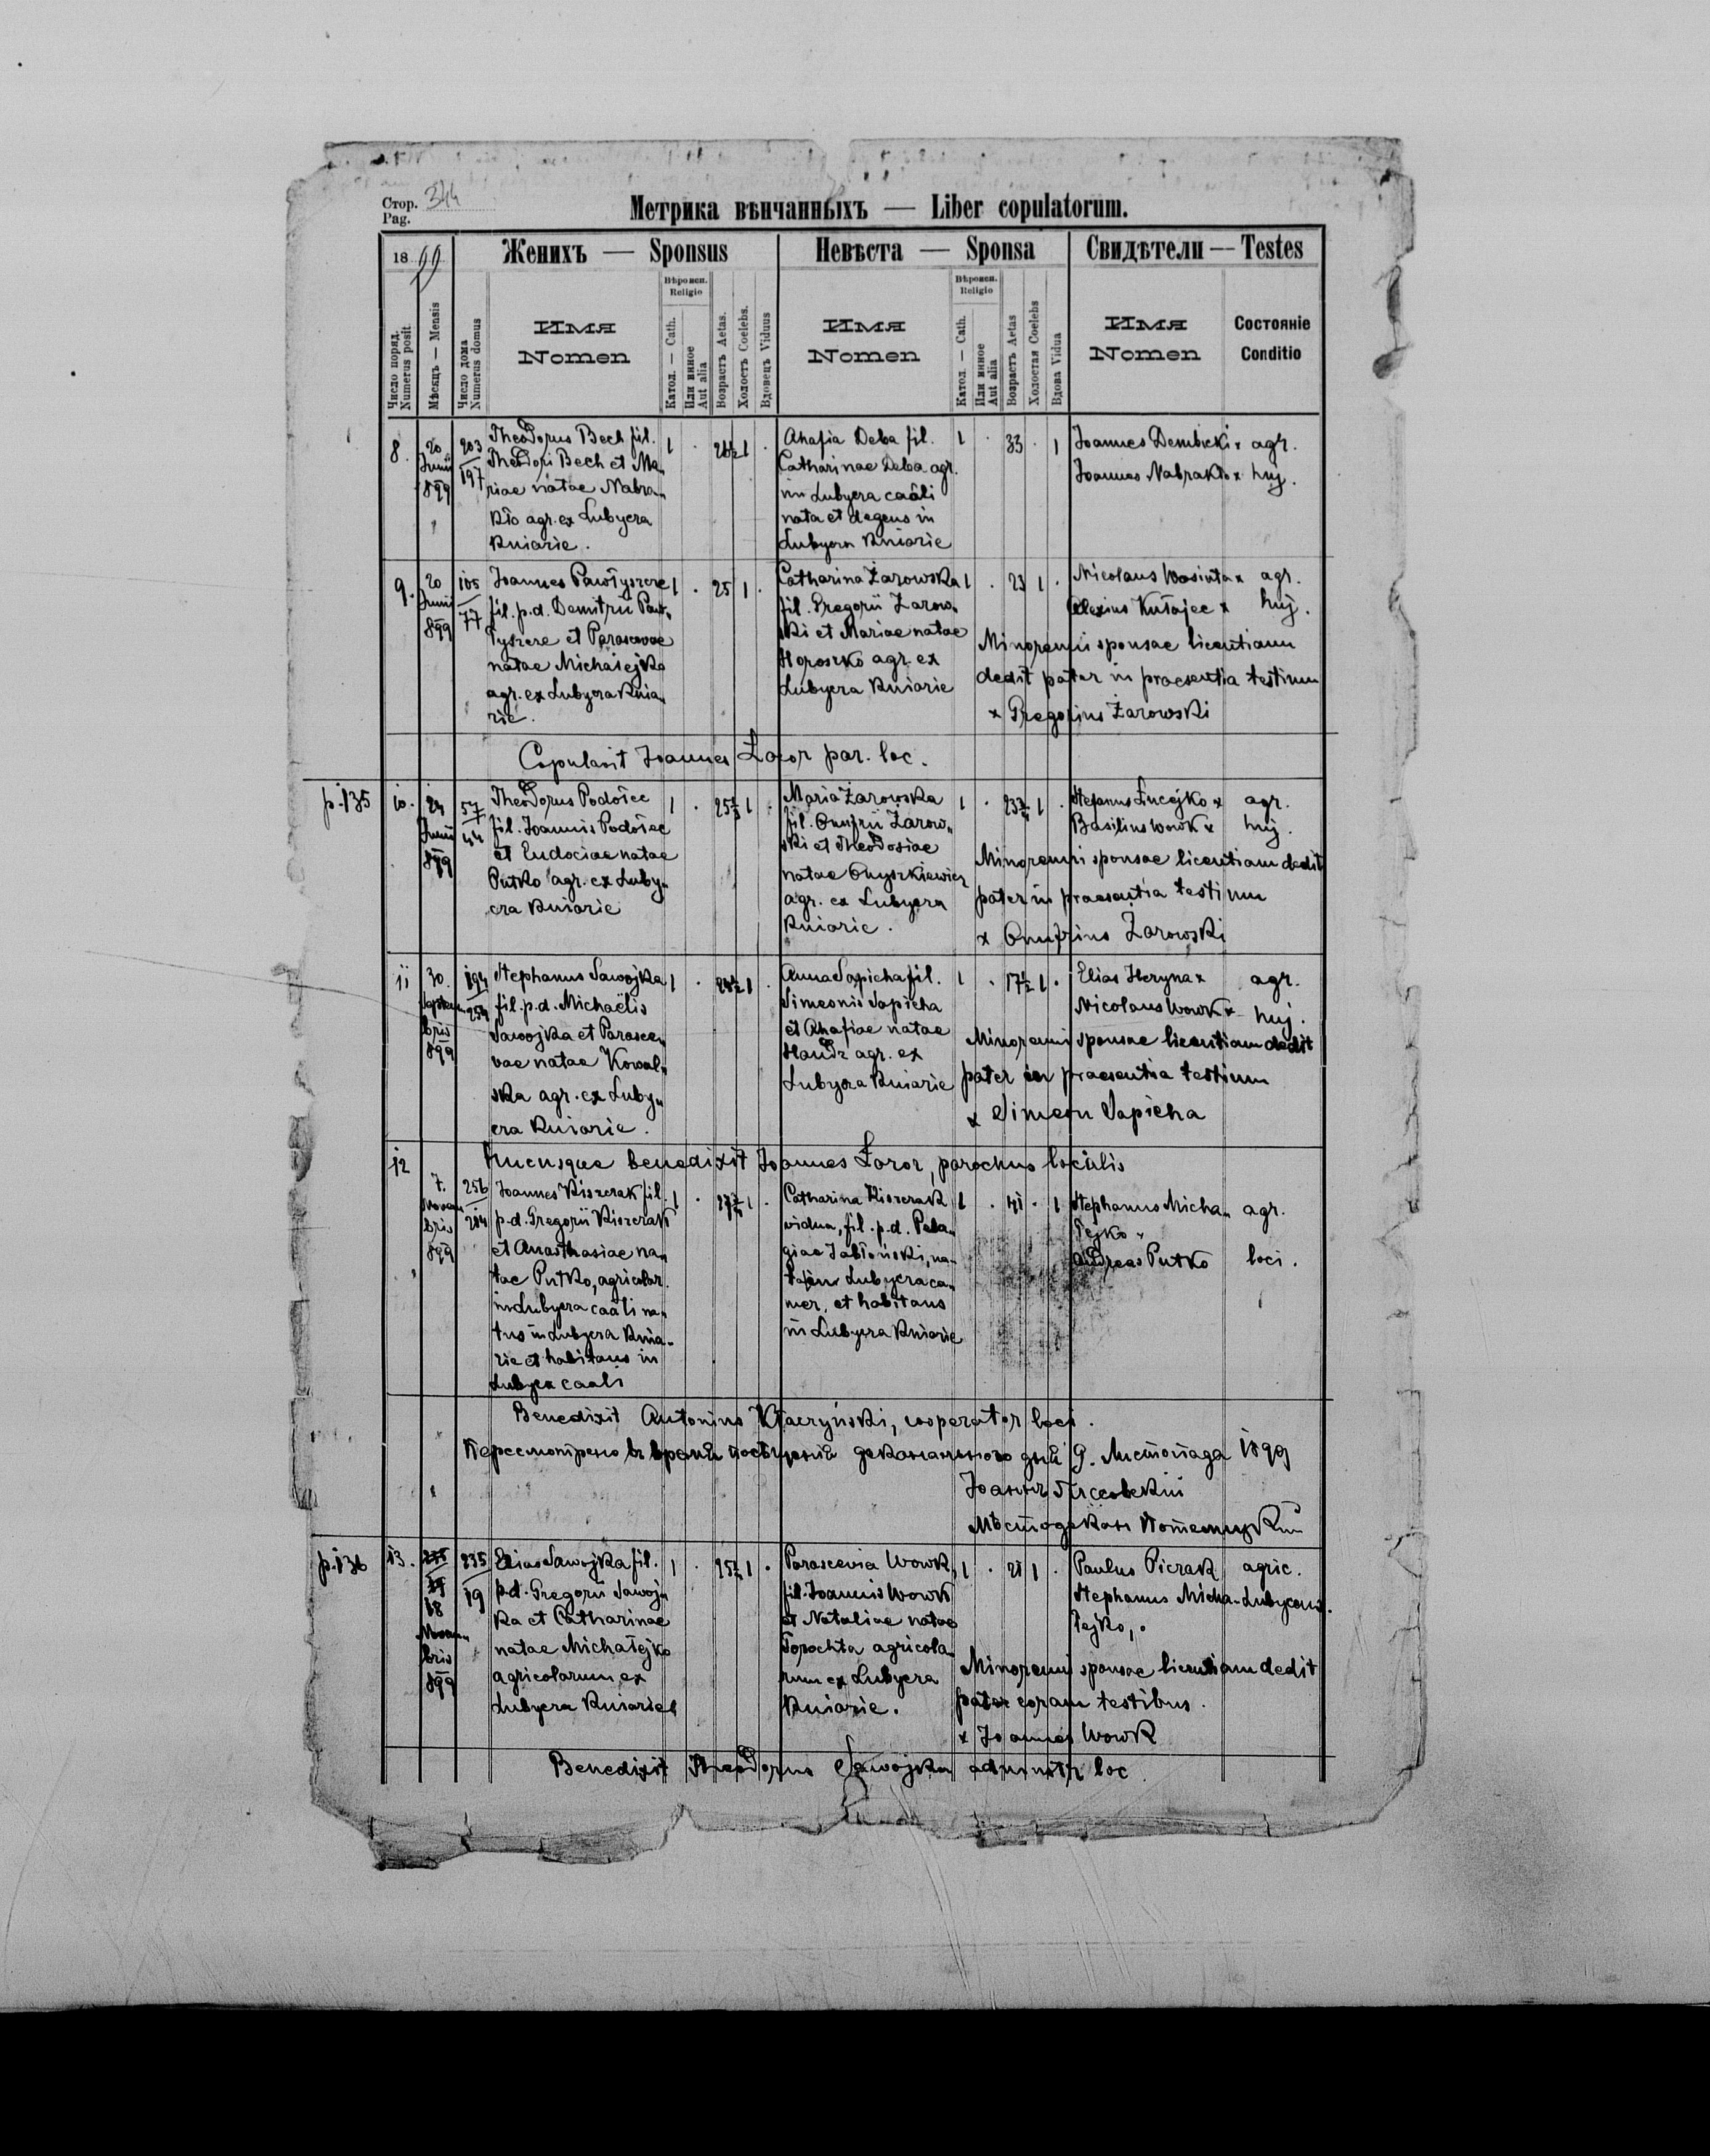 Стор. 344
Pag.
Метрика вѣнчанныхъ — Liber copulatorum.
1899
Женихъ — Sponsus
Невѣста — Sponsa
Свидѣтели — Testes
Число поряд.
Numerus posit.
Мѣсяцъ — Mensis
Число дома
Numerus domus
Имя
Nomen
Вѣроисп.
Religio
Катол. — Cath.
Или инное
Aut alia
Возрастъ Aetas.
Холостъ Coelebs.
Вдовецъ Viduus
Имя
Nomen
Вѣроисп.
Religio
Катол. — Cath.
Или инное
Aut alia
Возрастъ Aetas
Холостая Coelebs
Вдова Vidua
Имя
Nomen
Состояніе
Conditio
8.
20
Junii
899
203
197
Theodorus Bech fil.
Theodori Bech et Ma„
riae natae Nabra„
kło agr. ex Lubycra
Kniazie.
1 . 26½ 1 .
Ahafia Deba fil.
Catharinae Deba agr.
in Lubycra caâli
nata et degens in
Lubycra Kniazie
1 . 33 . 1
Joannes Dembicki x agr.
Joannes Nabrakło x huj.
9.
20
Junii
899
105
77
Joannes Pawłyszcze
fil. p.d. Demitrii Paw„
łyszcze et Parascevae
natae Michałejko
agr. ex Lubycra Knia„
zie.
1 . 25 1 .
Catharina Żarowska
fil. Gregorii Żarow„
ski et Mariae natae
Horoszko agr. ex
Lubycra Kniazie
1 . 23 1 .
Nicolaus Wasiuta x agr.
Alexius Kułajec x huj.
Minorenni sponsae licentiam
dedit pater in praesentia testium
x Gregorius Żarowski
Copulavit Joannes Łozor par. loc.
p. 135
10.
24
Junii
899
57
44
Theodorus Podołec
fil. Joannis Podołec
et Eudociae natae
Putko agr. ex Luby„
cra Kniazie
1 . 1 .
Maria Żarowska
fil. Onufrii Żarow„
ski et Theodosiae
natae Onyszkiewicz
agr. ex Lubycra
Kniazie.
1 . 1 .
Stefanus Łucejko x agr.
Basilius Wowk x huj.
Minorenni sponsae licentiam dedit
pater in praesentia testium
x Onufrius Żarowski
11
30.
Septem
bris
899
194
254
Stephanus Sawojka
fil. p.d. Michaëlis
Sawojka et Parasce„
vae natae Kowal„
ska agr. ex Luby„
cra Kniazie.
1 . 24½ 1 .
Anna Sapieha fil.
Simeonis Sapieha
et Ahafiae natae
Handz agr. ex
Lubycra Kniazie
1 . 17½ 1 .
Elias Heryna x agr.
Nicolaus Wowk x huj.
Minorenni sponsae licentiam dedit
pater in praesentia testium
x Simeon Sapieha
Hucusque benedixit Joannes Łozor, parochus localis
12
7.
Novem
bris
899
256
204
Joannes Kiszczak fil.
p.d. Gregorii Kiszczak
et Anasthasiae na„
tae Putko, agricolar.
in Lubycra caâli na„
tus in Lubycra Knia„
zie et habitans in
Lubycra caali
1 . 1 .
Catharina Kiszczak
vidua, fil. p.d. Pela„
giae Jabłoński, na„
ta in Lubycra ca„
mer. et habitans
in Lubycra Kniazie
1 . 41 . 1
Stephanus Micha„ agr.
łejko x
Andreas Putko loci.
Benedixit Antonius Kłaczyński, cooperator loci.
Пересмотрено въ время посѣщенія деканального дня 9. Листопада 1899
Іоаннъ
Мѣстодеканъ
p. 136
13.
18
Novem
bris
899
235
19
Elias Sawojka fil.
p.d. Gregorii Sawoj„
ka et Catharinae
natae Michałejko
agricolarum ex
Lubycra Kniazie
1 . 1 .
Parascevia Wowk,
fil. Joannis Wowk
et Nataliae natae
Torochta agricola„
rum ex Lubycra
Kniazie.
1 . 21 1 .
Paulus Piczak agric.
Stephanus Micha„ Lubycens.
łejko,
Minorenni sponsae licentiam dedit
pater coram testibus.
x Joannes Wowk
Benedixit Theodorus Sawojka administr loc.